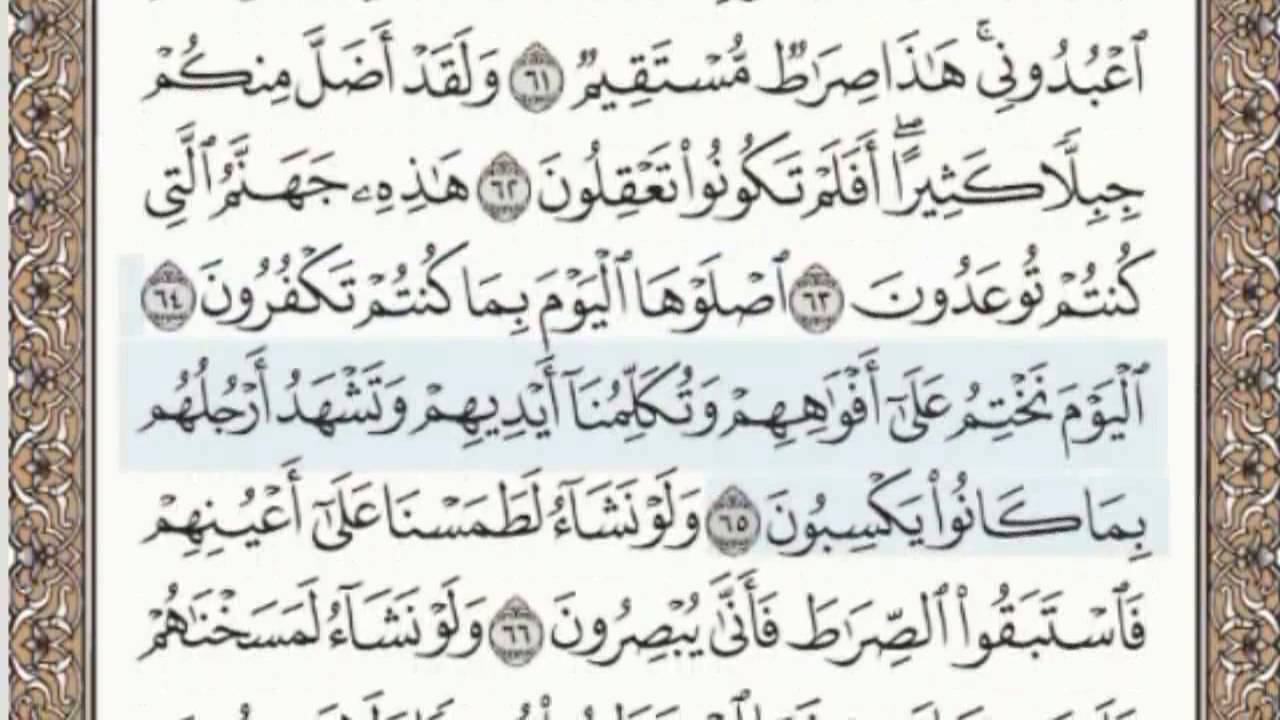 ٱعْبُدُونِىۚ هَٰذَا صِرَٰطٌ مُّسْتَقِيمٌ ٦١ وَلَقَدْ أَضَلَّ مِنكُمْ
جِبِلًّا كَثِيرًاۖ أَفَلَمْ تَكُونُوا۟ تَعْقِلُونَ ٦٢ هَٰذِهِۦ جَهَنَّمُ ٱلَّتِى
كُنتُمْ تُوعَدُونَ ٦٣ ٱصْلَوْهَا ٱلْيَوْمَ بِمَا كُنتُمْ تَكْفُرُونَ ٦٤
ٱلْيَوْمَ نَخْتِمُ عَلَىٰٓ أَفْوَٰهِهِمْ وَتُكَلِّمُنَآ أَيْدِيهِمْ وَتَشْهَدُ أَرْجُلُهُم
بِمَا كَانُوا۟ يَكْسِبُونَ ٦٥ وَلَوْ نَشَآءُ لَطَمَسْنَا عَلَىٰٓ أَعْيُنِهِمْ
فَٱسْتَبَقُوا۟ ٱلصِّرَٰطَ فَأَنَّىٰ يُبْصِرُونَ ٦٦ وَلَوْ نَشَآءُ لَمَسَخْنَٰهُمْ